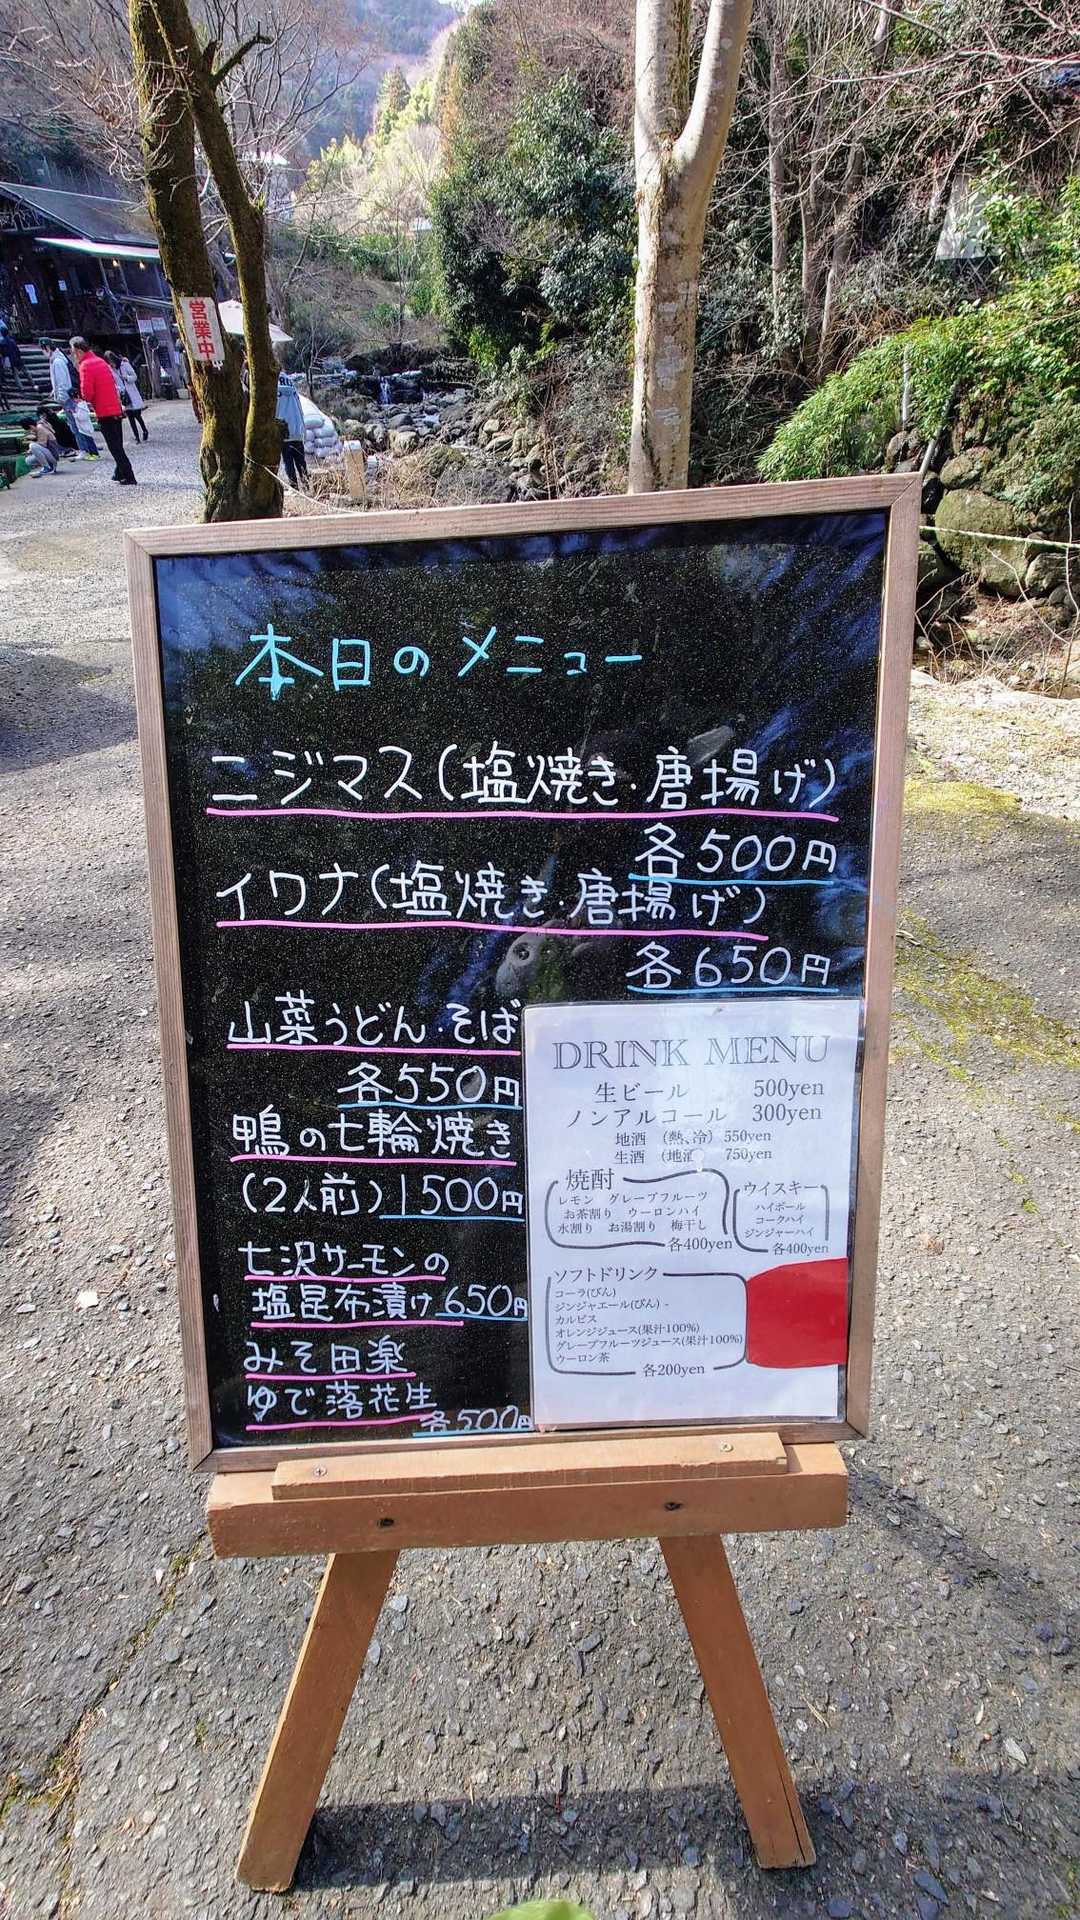 営業中
本日のメニュー
ニジマス(塩焼き・唐揚げ)
各500円
イワナ(塩焼き・唐揚げ)
各650円
山菜うどん・そば
各550円
鴨の七輪焼き
(2人前)1500円
七沢サーモンの
塩昆布漬け650円
みそ田楽
ゆで落花生
各500円
DRINK MENU
生ビール 500yen
ノンアルコール 300yen
地酒 (熱、冷) 550yen
生酒 (地酒 750yen
焼酎
レモン グレープフルーツ
お茶割り ウーロンハイ
水割り お湯割り 梅干し
各400yen
ウイスキー
ハイボール
コークハイ
ジンジャーハイ
各400yen
ソフトドリンク
コーラ(びん)
ジンジャエール(びん)
カルピス
オレンジジュース(果汁100%)
グレープフルーツジュース(果汁100%)
ウーロン茶
各200yen